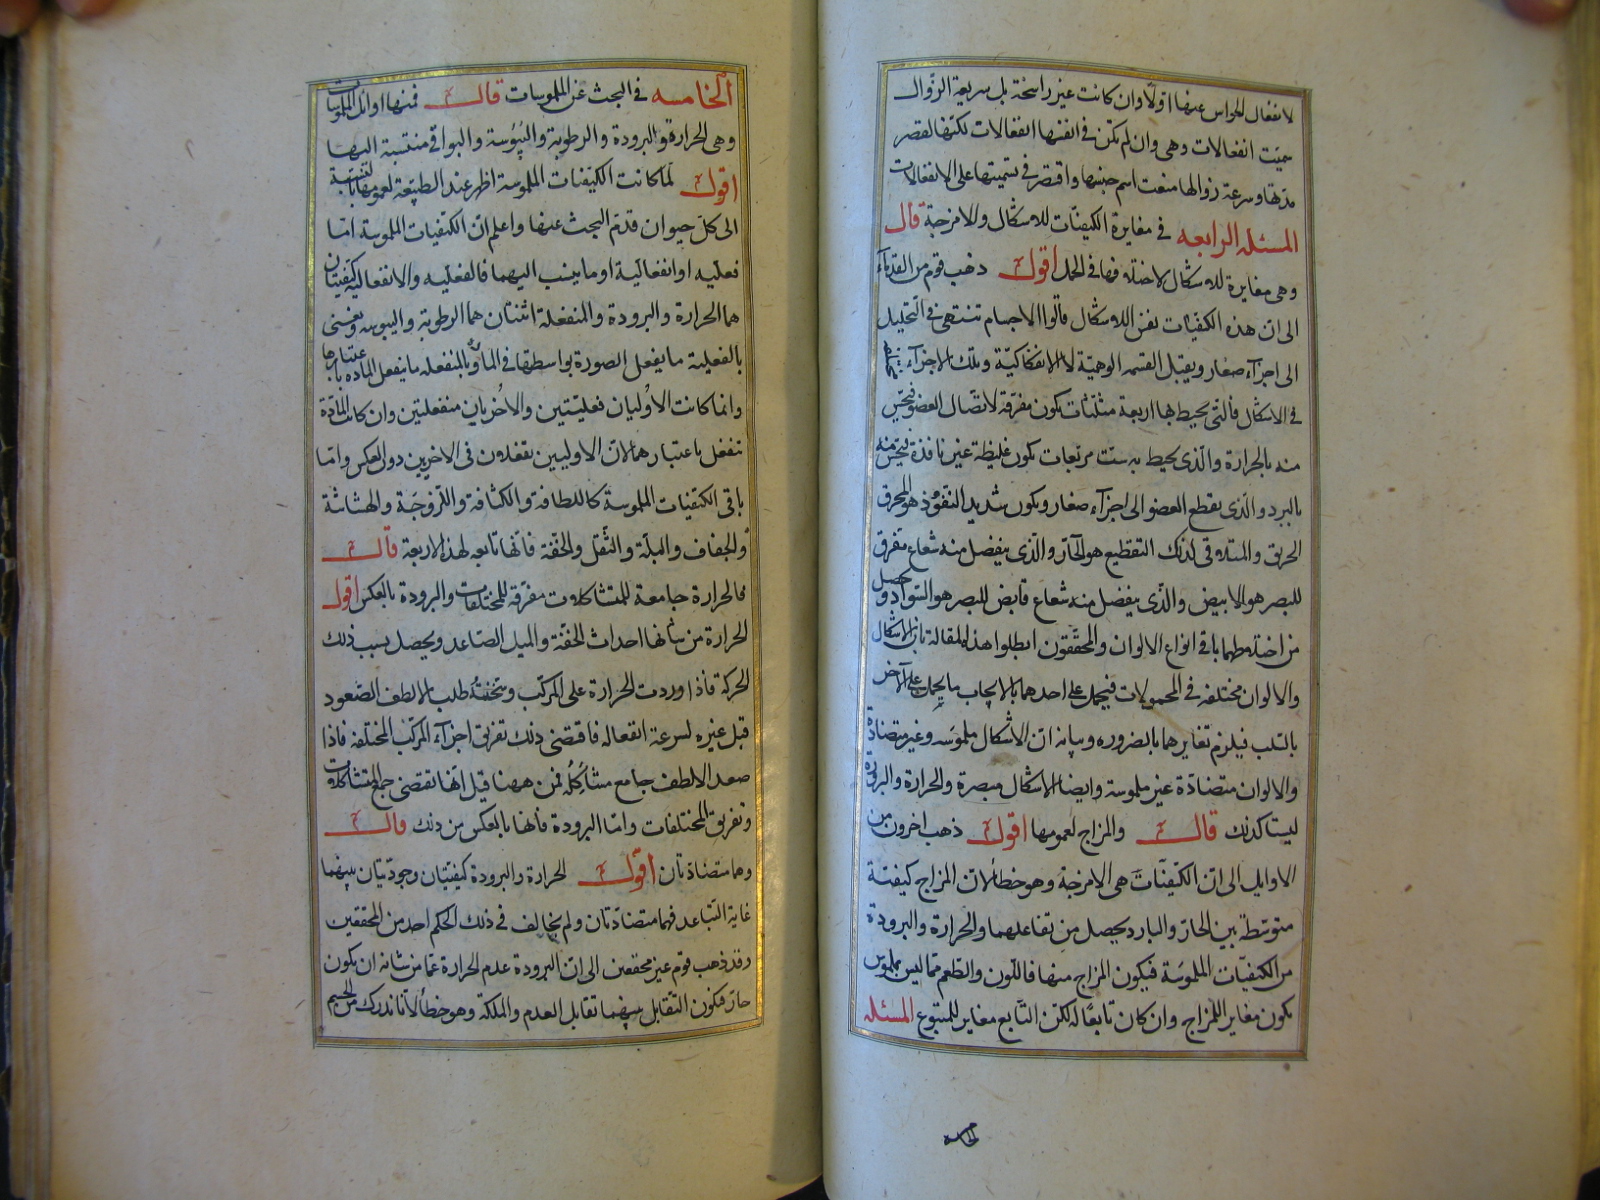 لانفعال الحواس عنها اوّلا وان كانت غير راسخة بل سريعة الزوال
سميت انفعالات وهى وان لم تكن فى انفسها انفعالات لكنها لقصر
مدتها وسرعة زوالها منعت اسم جنسها واقتصر فى تسميتها على الانفعالات
المسئله الرابعه فى مغايرة الكيفيّات للاشكال والامزجة قال
وهى مغايرة للاشكال لاختلافها فى الحمل اقول ذهب قوم من القدماء
الى ان هذه الكيفيّات نفس الاشكال قالوا الاجسام تنتهى فى التحليل
الى اجزآء صغار ويقبل القسمه الوهميّة لا الانفكاكيّة وتلك الاجزآء مختلفة
فى الاشكال فالتى يحيط بها اربعة مثلثات تكون مفرقة لاتصال العضو فيحس
منه بالحرارة والّذى يحيط به ست مربّعات يكون غليظة غير نافذة فيحس منه
بالبرد والّذى يقطع العضو الى اجزآء صغار ويكون شديد النفوذ هو المحرق
الحريق والمتلاقى لذلك التقطيع هو الحارّ والّذى ينفصل منه شعاع مفرق
للبصر هو الابيض والّذى ينفصل منه شعاع قابض للبصر هو السّواد ويحصل
من اختلاطهما باقى انواع الالوان والمحقّقون ابطلوا هذه المقالة بان الاشكال
والالوان مختلفه فى المحمولات فيحمل على احدهما بالايجاب ما يحمل على الآخر
بالسّلب فيلزم تغايرهما بالضروره وبيانه انّ الاشكال ملموسه وغير متضادّة
والالوان متضادّة غير ملموسة وايضا الاشكال مبصرة والحرارة والبرودة
ليستا كذلك قال والمزاج لعمومها اقول ذهب اخرون من
الاوايل الى انّ الكيفيّات هى الامزجة وهو خطأ لانّ المزاج كيفيّة
متوسّطة بين الحارّ والبارد يحصل من تفاعلهما والحرارة والبرودة
من الكيفيّات الملموسة فيكون المزاج منها فاللّون والطّعم ممّا ليس بملموس
يكون مغاير اللمزاج وان كان تابعًا له لكن التّابع مغاير للمتبوع المسئله
الخامسه
الخامسه فى البحث عن الملموسات قال فمنها اوائل الملموسات
وهى الحرارة والبرودة والرطوبة واليُبُوسة والبواقى منتسبة اليها
اقول لمّا كانت الكيفيّات الملموسة اظهر عند الطبيعة لعمومها بالنسبة
الى كلّ حيوان قدّم البحث عنها واعلم انّ الكيفيات الملموسة امّا
فعليه او انفعاليّة او ما ينسب اليهما فالفعليه والانفعاليّة كيفيتان
هما الحرارة والبرودة والمنفعلة اثنتان هما الرطوبة واليبوسه ونعنى
بالفعلية ما يفعل الصورة بواسطتها فى المادّة وبالمنفعله ما ينفعل المادّه باعتبارها
وانما كانت الأوليان فعليّتين والأخريان منفعلتين وان كانت المادّة
تنفعل باعتبارهما لانّ الاوليين تفعلان فى الاخريين دون العكس وامّا
باقى الكيفيات الملموسة كاللطافة والكثافة واللزوجة والهشاشة
والجفاف والبلّة والثّقل والخفّة فانّها تابعه لهذه الاربعة قال
فالحرارة جامعة للمتشاكلات مفرّقة للمختلفات والبرودة بالعكس اقول
الحرارة من شأنها احداث الخفّة والميل الصّاعد ويحصل بسبب ذلك
الحركة فاذا وردت الحرارة على المركّب وسخنته طلب الالطف الصّعود
قبل غيره لسرعة انفعاله فاقتضى ذلك تفريق اجزآء المركّب المختلفه فاذا
صعد الالطف جامع مشاكِلُه فمن ههنا قيل انّها تقتضى جمع المتشاكلات
وتفريق المختلفات وامّا البرودة فانّها بالعكس من ذلك قال
وهما متضادّتان اقول الحرارة والبرودة كيفيتان وجوديّتان بينهما
غاية التّباعد فهما متضادّتان ولم يخالف فى ذلك الحكم احد من المحققين
وقد ذهب قوم غير محققين الى انّ البرودة عدم الحرارة عمّا من شانه ان يكون
حارّ فيكون التّقابل بينهما تقابل العدم والملكة وهو خطأ لانّا ندرك من الجسم